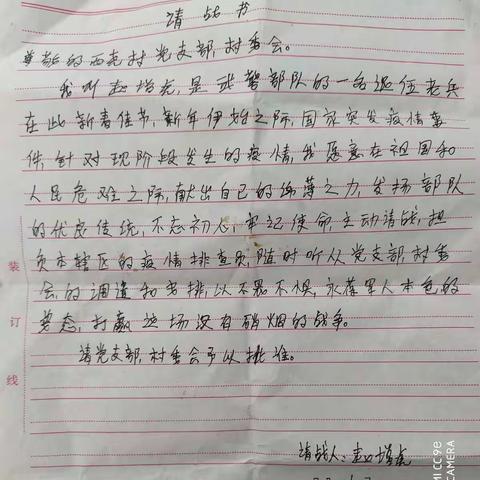 请战书
尊敬的西尧村党支部,村委会。
我叫赵增虎,是武警部队的一名退伍老兵
在此新春佳节,新年伊始之际,国家突发疫情事
件,针对现阶段发生的疫情,我愿意在祖国和
人民危难之际,献出自己的绵薄之力,发扬部队
的优良传统,不忘初心,牢记使命,主动请战,担
负本辖区的疫情排查员,随时听从党支部,村委
会的调遣和安排,以不畏不惧,永葆军人本色的
姿态,打赢这场没有硝烟的战争。
请党支部,村委会予以批准。
请战人:赵增虎
装
订
线
MI CC9e
CAMERA